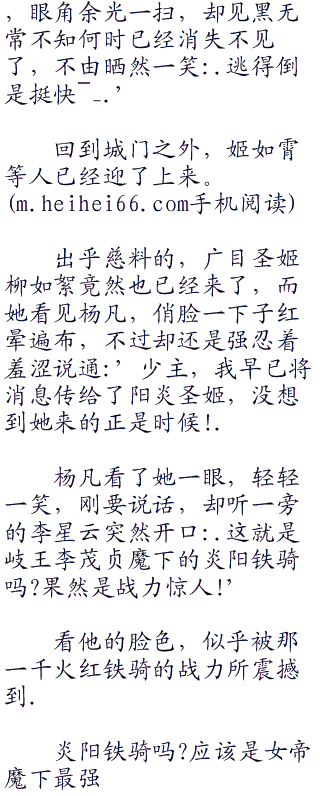 ，眼角余光一扫，却见黑无
常不知何时已经消失不见
了，不由晒然一笑:.逃得倒
是挺快¯_.’
回到城门之外，姬如霄
等人已经迎了上来。
(m.heihei66.com手机阅读)
出乎慈料的，广目圣姬
柳如絮竟然也已经来了，而
她看见杨凡，俏脸一下子红
晕遍布，不过却还是强忍着
羞涩说通:’少主，我早已将
消息传给了阳炎圣姬，没想
到她来的正是时候!.
杨凡看了她一眼，轻轻
一笑，刚要说话，却听一旁
的李星云突然开口:.这就是
岐王李茂贞魔下的炎阳铁骑
吗?果然是战力惊人!’
看他的脸色，似乎被那
一千火红铁骑的战力所震撼
到.
炎阳铁骑吗?应该是女帝
魔下最强